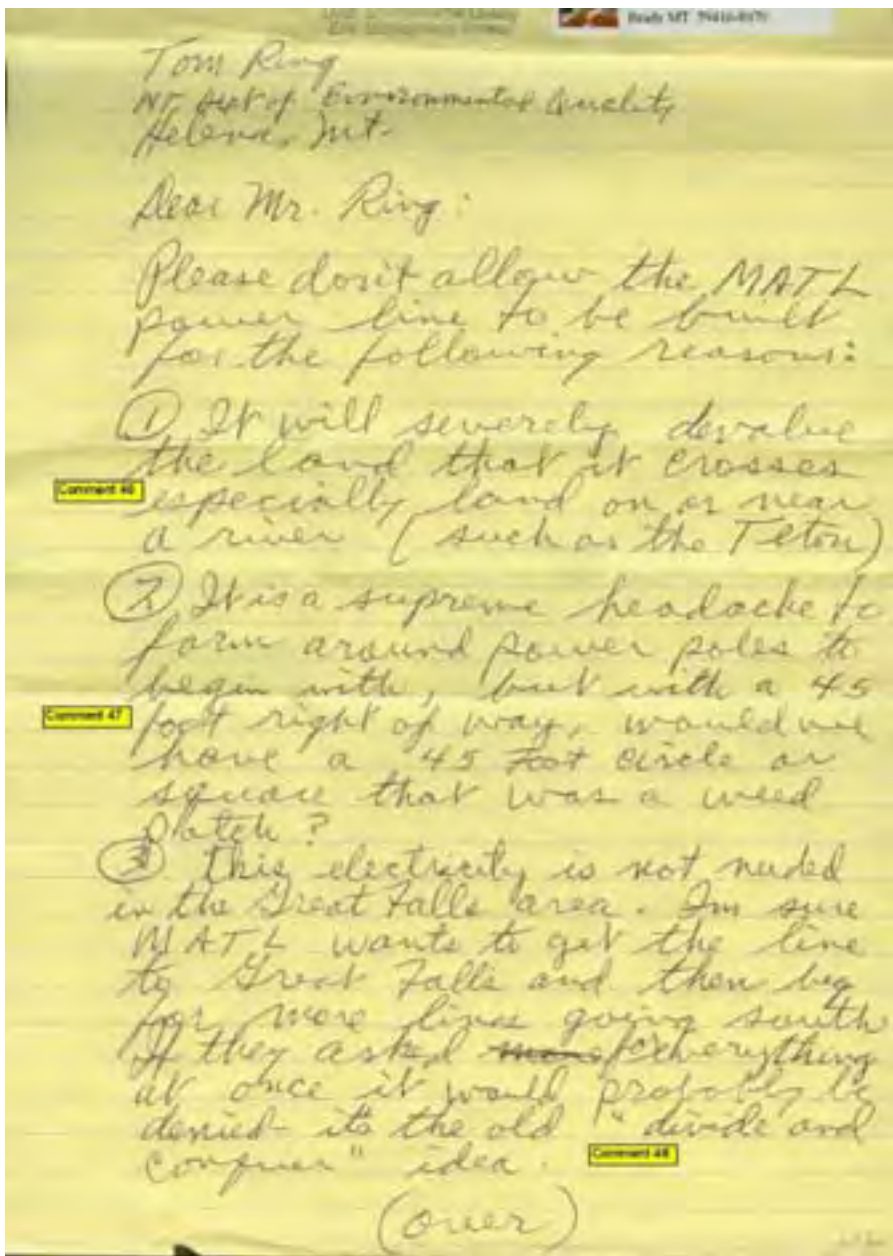 Brady MT 59416-0170
Tom Ring
MT Dept of Environmental Quality
Helena, Mt.
Dear Mr. Ring:
Please don't allow the MATL
power line to be built
for the following reasons:
① It will severely devalue
the land that it crosses
Comment 46
especially land on or near
a river (such as the Teton)
② It is a supreme headache to
farm around power poles to
begin with, but with a 45
Comment 47
foot right of way, would we
have a 45 Foot circle or
square that was a weed
patch?
③ This electricity is not needed
in the Great Falls area. Im sure
MATL wants to get the line
to Great Falls and then beg
for more lines going south
If they asked for everything
at once it would probably be
denied - its the old "divide and
conquer" idea.
Comment 48
(over)